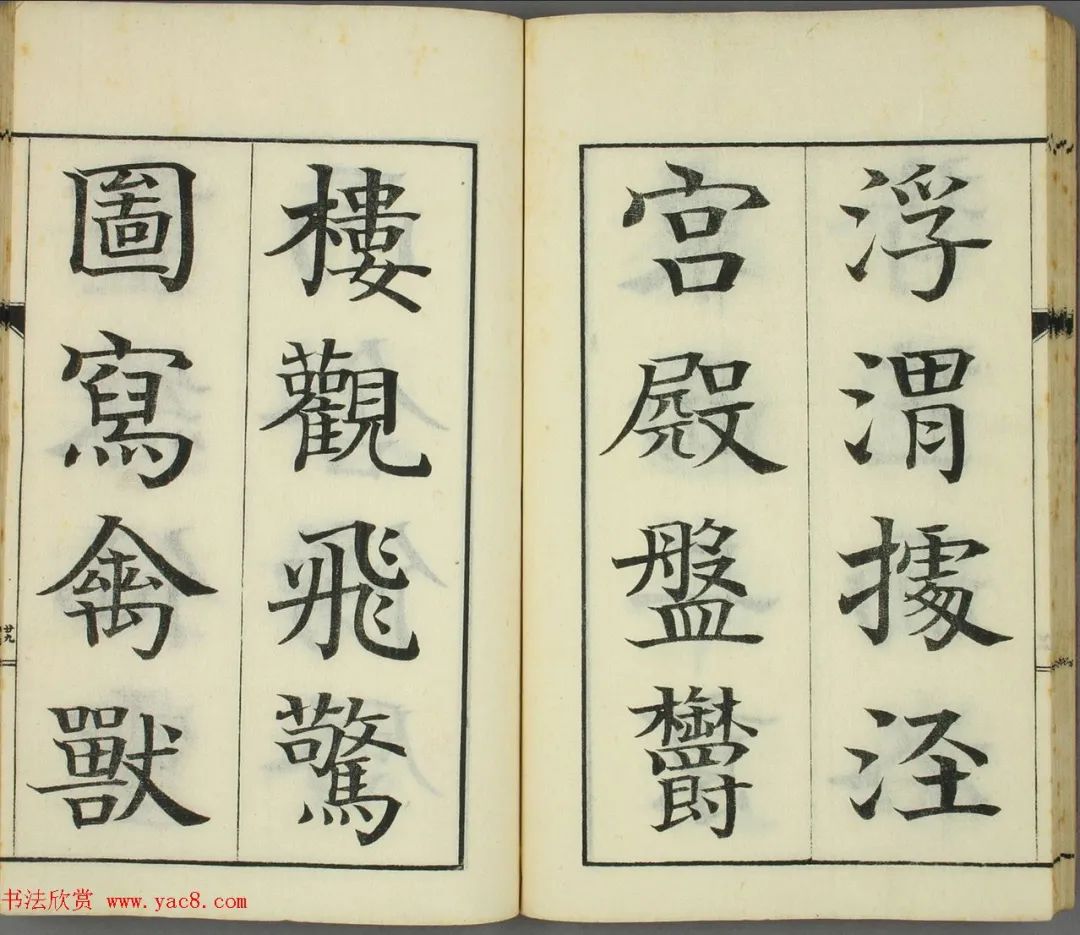 浮渭據泾
宫殿盤欝
樓觀飛驚
圖寫禽獸
廿九
书法欣赏 www.yac8.com